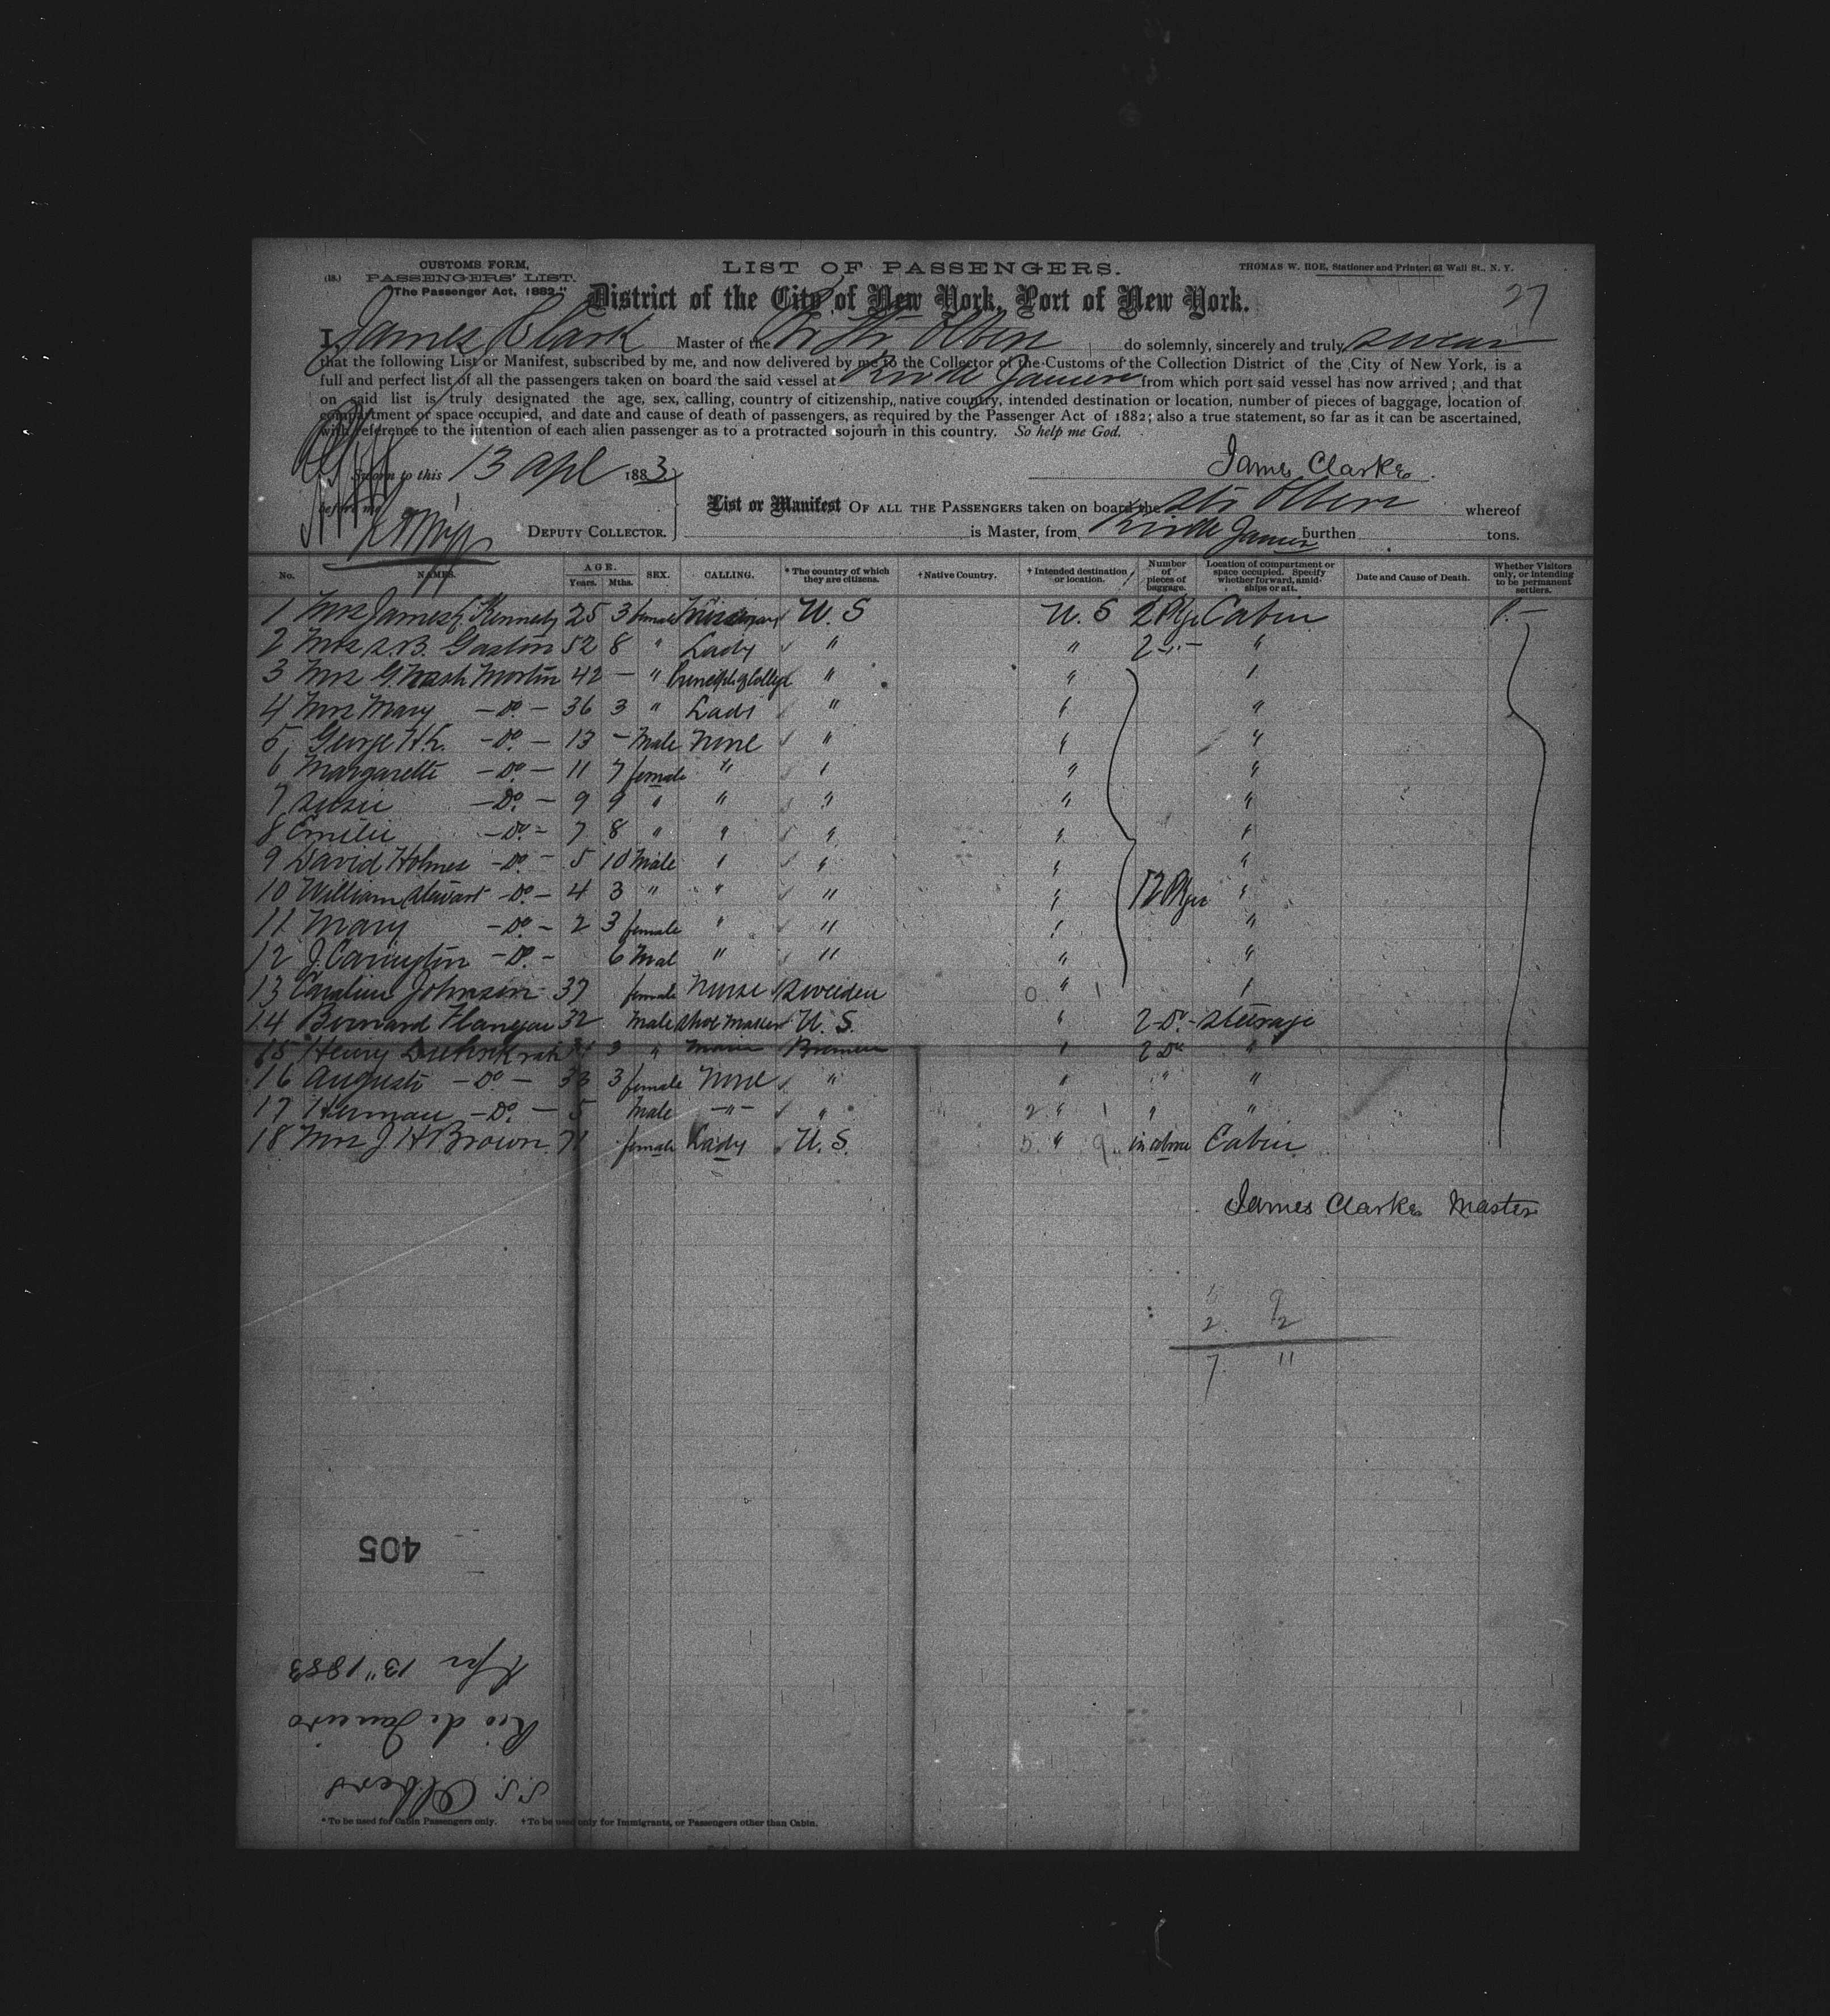 CUSTOMS FORM,
(18.) PASSENGERS' LIST.
"The Passenger Act, 1882."
LIST OF PASSENGERS.
THOMAS W. ROE, Stationer and Printer, 61 Wall St., N. Y.
District of the City of New York, Port of New York.
27
I, James Clark Master of the Br Str Olbers do solemnly, sincerely and truly swear
that the following List or Manifest, subscribed by me, and now delivered by me to the Collector of the Customs of the Collection District of the City of New York, is a
full and perfect list of all the passengers taken on board the said vessel at Rio de Janeiro from which port said vessel has now arrived; and that
on said list is truly designated the age, sex, calling, country of citizenship, native country, intended destination or location, number of pieces of baggage, location of
compartment or space occupied, and date and cause of death of passengers, as required by the Passenger Act of 1882; also a true statement, so far as it can be ascertained,
with reference to the intention of each alien passenger as to a protracted sojourn in this country. So help me God.
Sworn to this 13 apl 1883
James Clarke
before me
DEPUTY COLLECTOR.
List or Manifest OF ALL THE PASSENGERS taken on board the Str Olbers whereof
is Master, from Rio de Janeiro burthen tons.
No. NAMES. AGE. Years. Mths. SEX. CALLING. * The country of which they are citizens. † Native Country. † Intended destination or location. Number of pieces of baggage. Location of compartment or space occupied. Specify whether forward, amidships or aft. Date and Cause of Death. Whether Visitors only, or intending to be permanent settlers.
1 Mrs James Kennedy 25 3 female Missionary U. S U. S 2 Pkgs Cabin
2 Mrs S.B. Gaston 52 8 " Lady " " 2 " "
3 Mrs G. Nash Morton 42 — " Principl of College " " "
4 Mrs Mary — Do — 36 3 " Lady " " "
5 George H. — Do — 13 — Male None " " "
6 Margarette — Do — 11 7 female " " " "
7 Susie — Do — 9 9 " " " " "
8 Emilie — Do — 7 8 " " " " "
9 David Holmes — Do — 5 10 Male " " " "
10 William Stewart — Do — 4 3 " " " " 12 Pkgs "
11 Mary — Do — 2 3 female " " " "
12 J. Carington — Do — 6 Mal " " " "
13 Caroline Johnson 37 female Nurse Sweeden 0 " 1 "
14 Bernard Flanagan 32 Male Shoe Maker U. S. " 2 Do Steerage
15 Henry 3 " Bremen " 2 Do "
16 Auguste — Do — 33 3 female None " " " "
17 Herman — Do — 5 Male — " — " 2 " 1 " "
18 Mrs J H Brown 71 female Lady U. S. 5 " 9 in above Cabin
James Clarke Master
5 9
2 2
7 11
405
Apr 13" 1883
Rio de Janeiro
S.S. Olbers
* To be used for Cabin Passengers only. † To be used only for Immigrants, or Passengers other than Cabin.